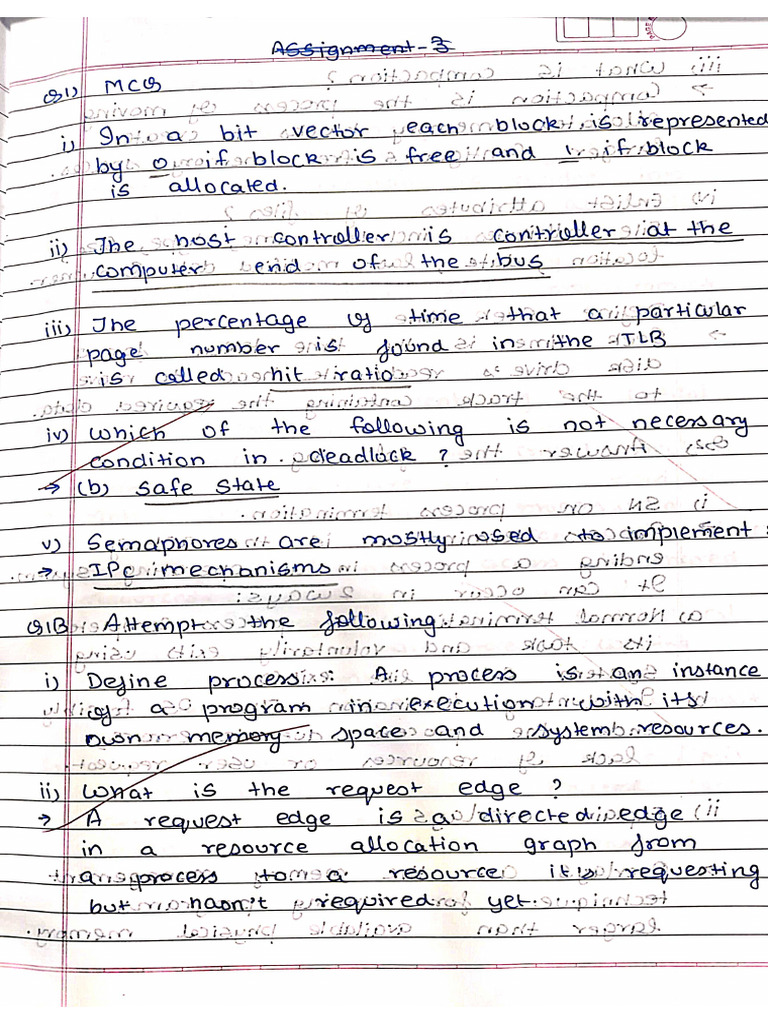 Assignment-3
Q1) MCQ
i) In a bit vector each block is represented
by 0 if block is free and 1 if block
is allocated.
ii) The host controller is controller at the
computer end of the bus
iii) The percentage of time that a particular
page number is found in the TLB
is called hit ratio
iv) Which of the following is not necessary
condition in deadlock ?
→ (b) Safe State
v) Semaphores are mostly used to implement
→ IPC mechanisms
Q1B) Attempt the following
i) Define process : A process is an instance
of a program in execution with its
own memory space and system resources.
ii) What is the request edge ?
→ A request edge is a directed edge
in a resource allocation graph from
a process to a resource it is requesting
but hasn't required yet.